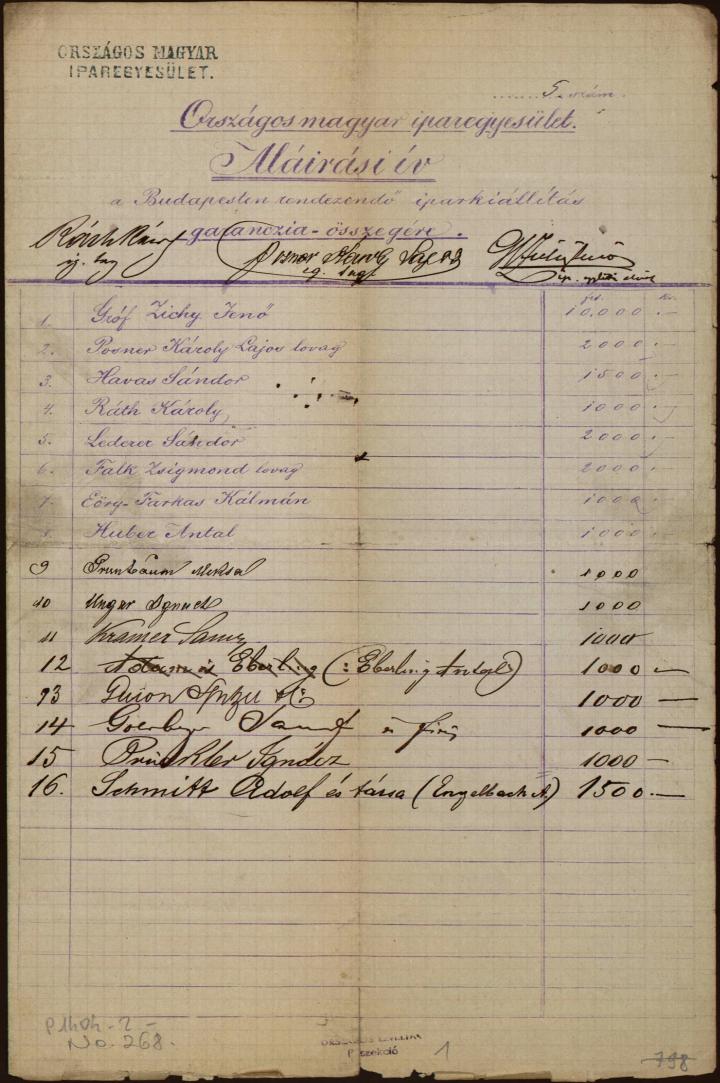 ORSZÁGOS MAGYAR
IPAREGYESÜLET.
5. szám.
Országos magyar iparegyesület.
Aláirási ív
a Budapesten rendezendő iparkiállítás
garanczia-összegére.
Ráth Károly
Posner Károly Lajos
frt. kr.
1. Gróf Zichy Jenő 10.000 .—
2. Posner Károly Lajos lovag 2000 .—
3. Havas Sándor 1500 .—
4. Ráth Károly 1000 .—
5. Lederer Sándor 2000 .—
6. Falk Zsigmond lovag 2000 .—
7. Eöry-Farkas Kálmán 1000 .—
8. Huber Antal 1000 .—
9 1000
10 Unger 1000
11 Krámer 1000
12 Eberling (: Eberling Antal :) 1000 —
13 1000 —
14 1000 —
15 János 1000 —
16. Schmitt Adolf és társa (Engelbach A) 1500 —
P1404-2-
No. 268.
ORSZÁGOS LEVÉLTÁR
P szekció
1
798